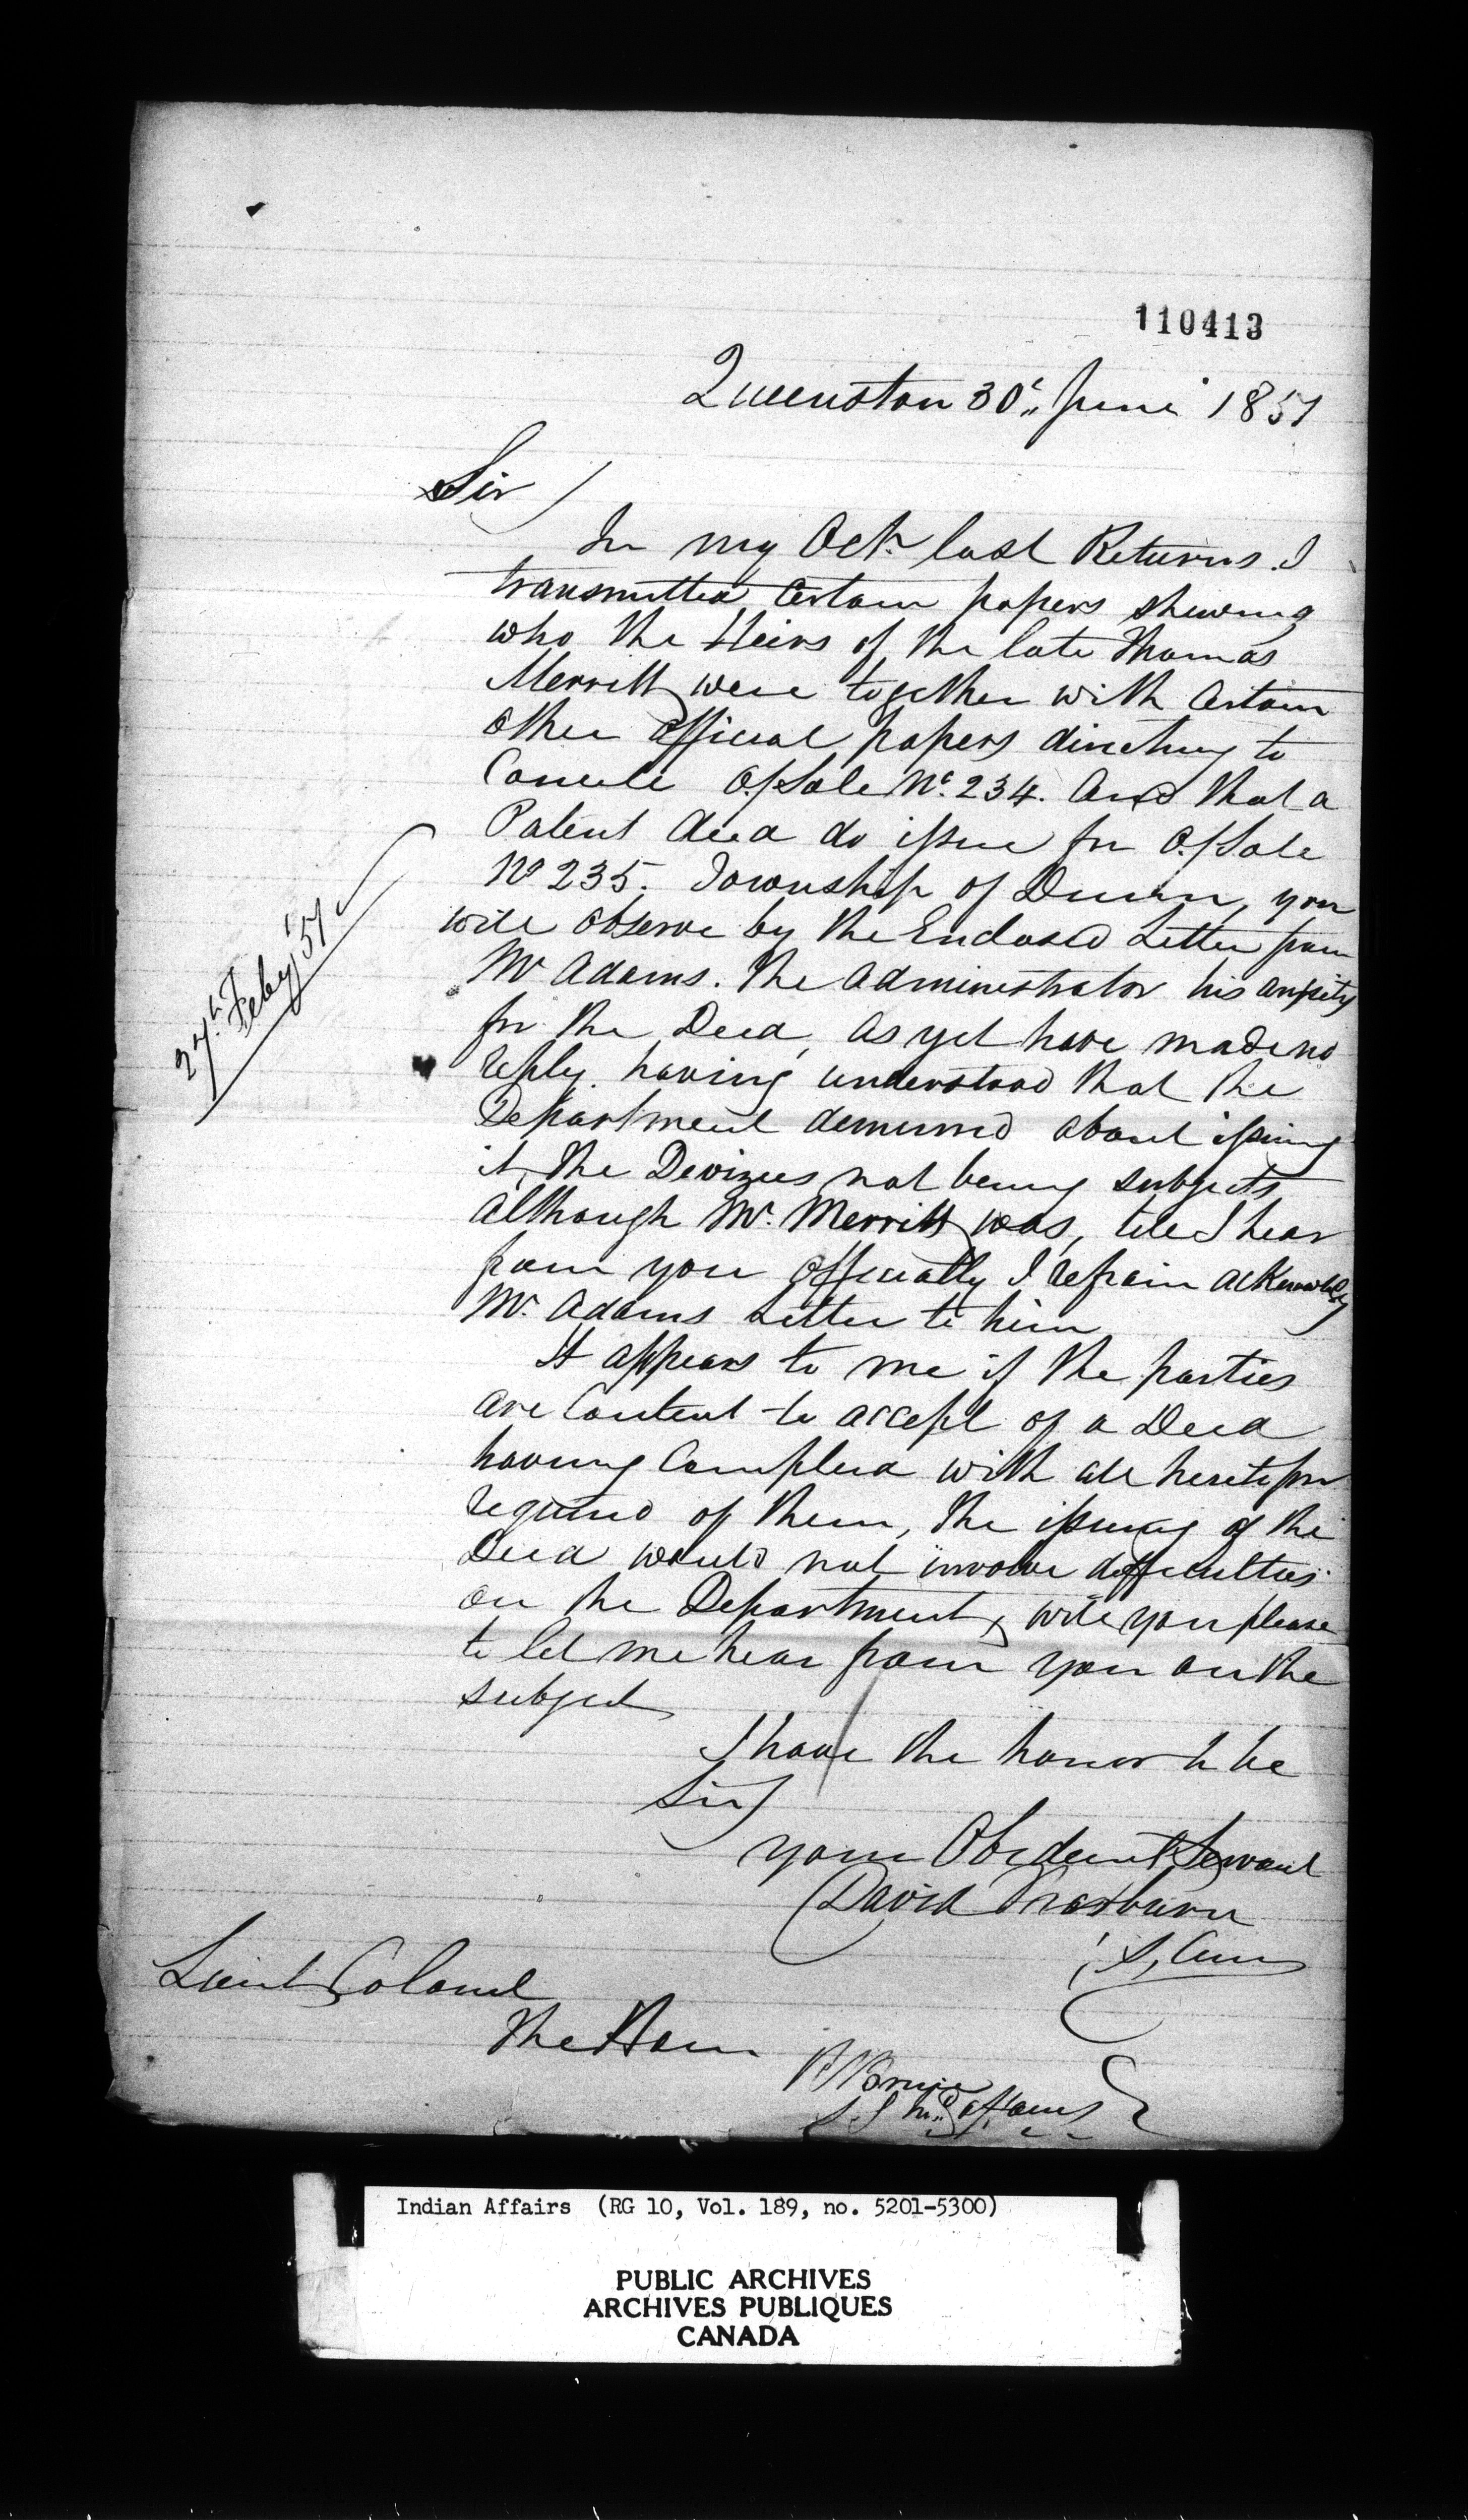 110413
Queenston 30th June 1851
Sir
In my Octr last Returns I
transmitted Certain papers shewing
who the Heirs of the late Thomas
Merritt were together with Certain
other official papers directing to
Cancele C/Sale No. 234. And that a
Patent deed do issue for C/Sale
No 235. Township of Dunn, you
will observe by the Enclosed Letter from
Mr Adams. the Administrator his anxiety
for the Deed, as yet have made no
reply. having understood that the
Department demurred about issuing
it, the Devizees not being subjects
although Mr. Merritt was, till I hear
from you officially I refrain acknowledg
Mr. Adams Letter to him
It appears to me if the parties
are Content to accept of a Deed
having Complied with all heretofore
required of them, the issuing of the
Deed would not involve difficulties
on the Department, will you please
to let me hear from you on the
subject
I have the honor to be
Sir
your Obedient Servant
David Thorburn
Lieut Colonel
The Hon
R Bruce
S. I. Affairs
27th Feby '51
Indian Affairs (RG 10, Vol. 189, no. 5201-5300)
PUBLIC ARCHIVES
ARCHIVES PUBLIQUES
CANADA